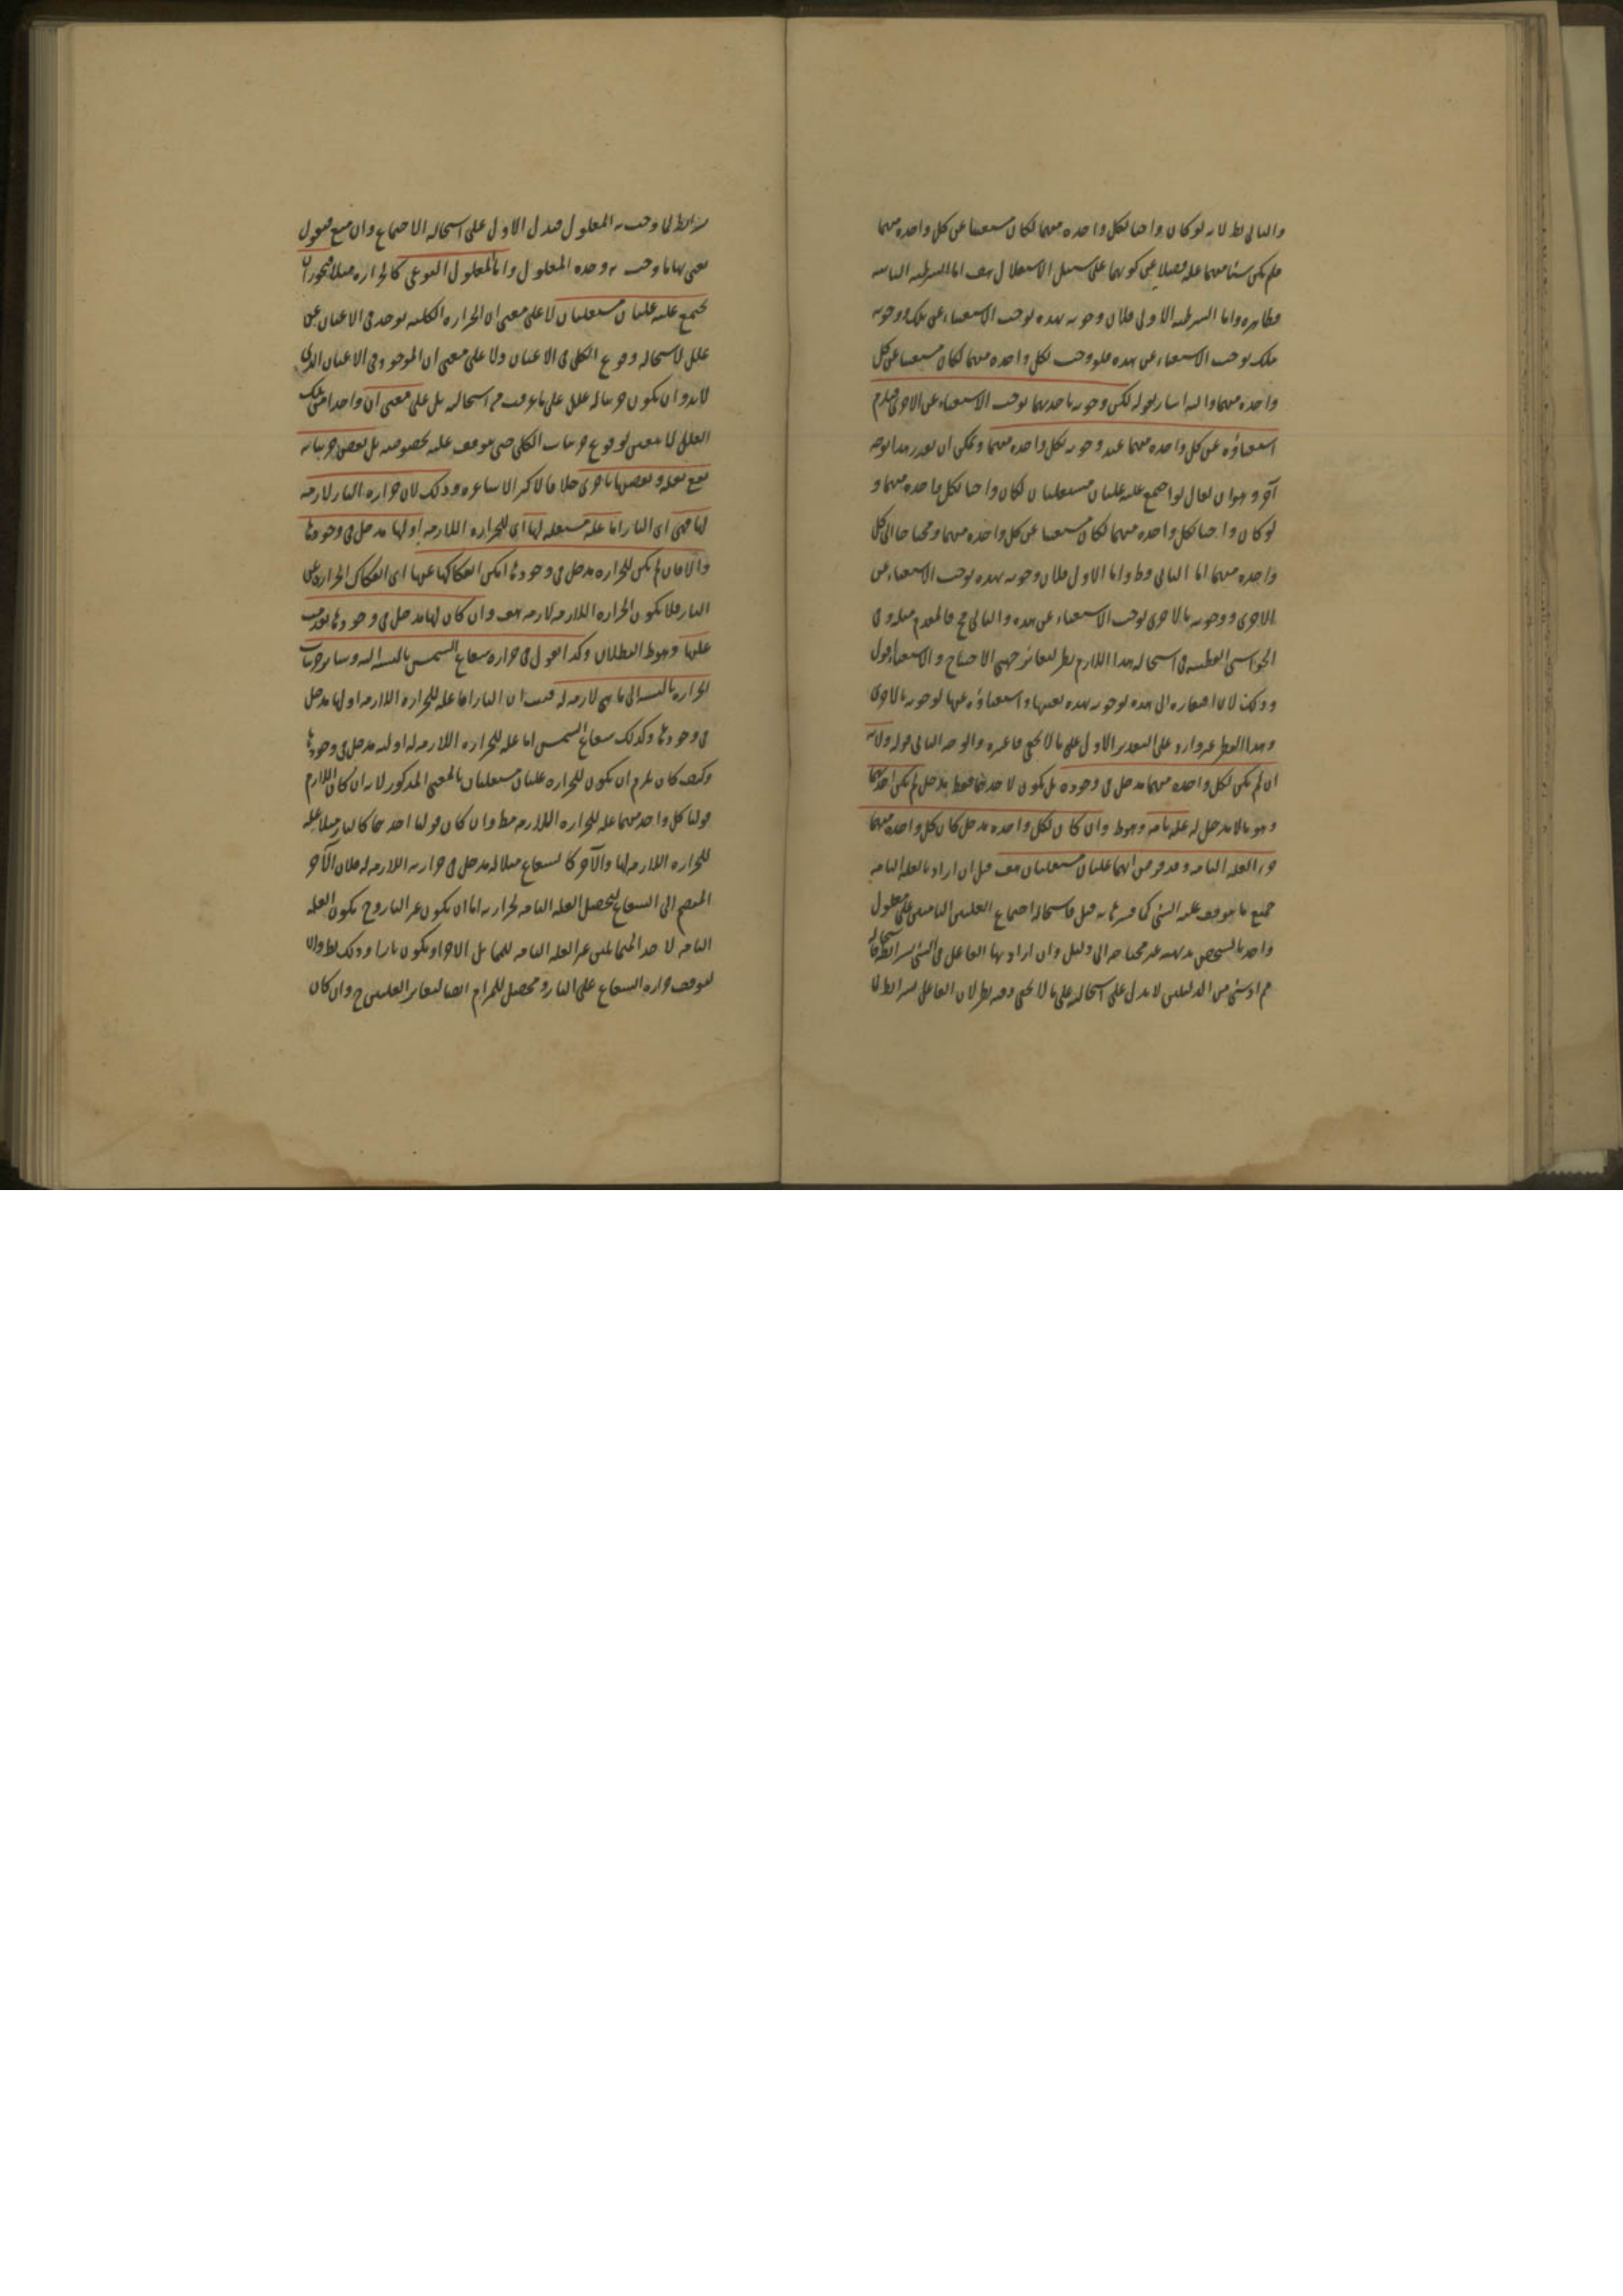 والتالى بط لانه لو كان واجبا لكل واحدة منهما لكان مستغنيا عن كل واحدة منهما
فلم يكن شىء منهما علة فضلا عن كونهما على سبيل الاستقلال هف اما الشرطية الثانية
فظاهرة واما الشرطية الاولى فلان وجوبه بهذه يوجب الاستغناء عن تلك ووجوبه
بتلك يوجب الاستغناء عن هذه فلو وجب لكل واحدة منهما لكان مستغنيا عن كل
واحدة منهما واليه اشار بقوله لكن وجوبه باحديهما يوجب الاستغناء عن الاخرى فيلزم
استغناؤه عن كل واحدة منهما عند وجوبه لكل واحدة منهما ويمكن ان يقرر هذا بوجه
آخر وهو ان يقال لو اجتمع عليه علتان مستقلتان لكان واجبا لكل واحدة منهما و
لو كان واجبا لكل واحدة منهما لكان مستغنيا عن كل واحدة منهما ومحتاجا الى كل
واحدة منهما اما الثانى وط واما الاول فلان وجوبه بهذه يوجب الاستغناء عن
الاخرى ووجوبه بالاخرى يوجب الاستغناء عن هذه والتالى مح فالمقدم مثله وفى
الحواشى القطبية فى استحالة هذا اللازم نظر لتغاير جهتى الاحتياج والاستغناء اقول
وذلك لان افتقاره الى هذه لوجوبه بهذه بعينها واستغناؤه عنها لوجوبه بالاخرى
وهذا النظر غير وارد على التقدير الاول على ما لا يخفى فاعرفه والوجه الثانى قوله ولانه
ان لم يكن لكل واحدة منهما مدخل فى وجوده بل يكون لاحديهما فقط مدخل لم يكن احديهما
وهو ما لا مدخل له علة تامة وهو ط وان كان لكل واحدة مدخل كان كل واحدة منهما
جزء العلة التامة وقد فرض انهما علتان مستقلتان هف قيل ان اراد بالعلة التامة
جميع ما يتوقف عليه الشىء كما فسرها به قبل فاستحالة اجتماع العلتين التامتين على معلول
واحد بالشخص بديهية غير محتاجة الى دليل وان اراد بها الفاعل فى الشىء بشرائطه فاستحالة
لان الفاعل بشرائط لما
شرائط لما وجب به المعلول فيدل الاول على استحالة الاجتماع وان منع فنقول
نعنى بها ما وجب به وحده المعلول واما المعلول النوعى كالحرارة مثلا فيجوز ان
يجتمع عليه علتان مستقلتان لا على معنى ان الحرارة الكلية يوجد فى الاعيان عن
علل لاستحالة وقوع الكلى فى الاعيان ولا على معنى ان الموجود فى الاعيان الذى
لا بد وان يكون جزئيا له علل على ما عرفت من استحالته بل على معنى ان واحدا من تلك
العلل لا يتعين لوقوع جزئيات الكلى حتى يتوقف عليه بخصوصه بل بعض جزئياته
يقع بعلة وبعضها باخرى خلافا لاكثر الاشاعرة وذلك لان حرارة النار لازمة
لها فهى اى النار اما علة مستقلة لها اى للحرارة اللازمة او لها مدخل فى وجودها
والا فان لم يكن للحرارة مدخل فى وجودها امكن انفكاكها عنها اى انفكاك الحرارة عن
النار فلا يكون الحرارة اللازمة لازمة هف وان كان لها مدخل فى وجودها
عليها وهو ظ البطلان وكذا القول فى حرارة شعاع الشمس بالنسبة اليه وسائر جزئيات
الحرارة بالنسبة الى ما هى لازمة له فثبت ان النار اما علة للحرارة اللازمة او لها مدخل
فى وجودها وكذلك شعاع الشمس اما علة للحرارة اللازمة له او له مدخل فى وجودها
وكيف كان يلزم ان يكون للحرارة علتان مستقلتان بالمعنى المذكور لانه ان كان اللازم
قولنا كل واحد منهما علة للحرارة اللازمة فظ وان كان قولنا احديهما كالنار مثلا علة
للحرارة اللازمة لها والآخر كالشعاع مثلا له مدخل فى حرارته اللازمة له فلان الآخر
المنضم الى الشعاع لتحصل العلة التامة لحرارته اما ان يكون غير النار وح يكون العلة
التامة لاحد المتماثلين غير العلة التامة للمماثل الآخر او يكون نارا وذلك بط والا
لتوقف حرارة الشعاع على النار ومحصل للمرام ايضا لتغاير العلتين ح وان كان